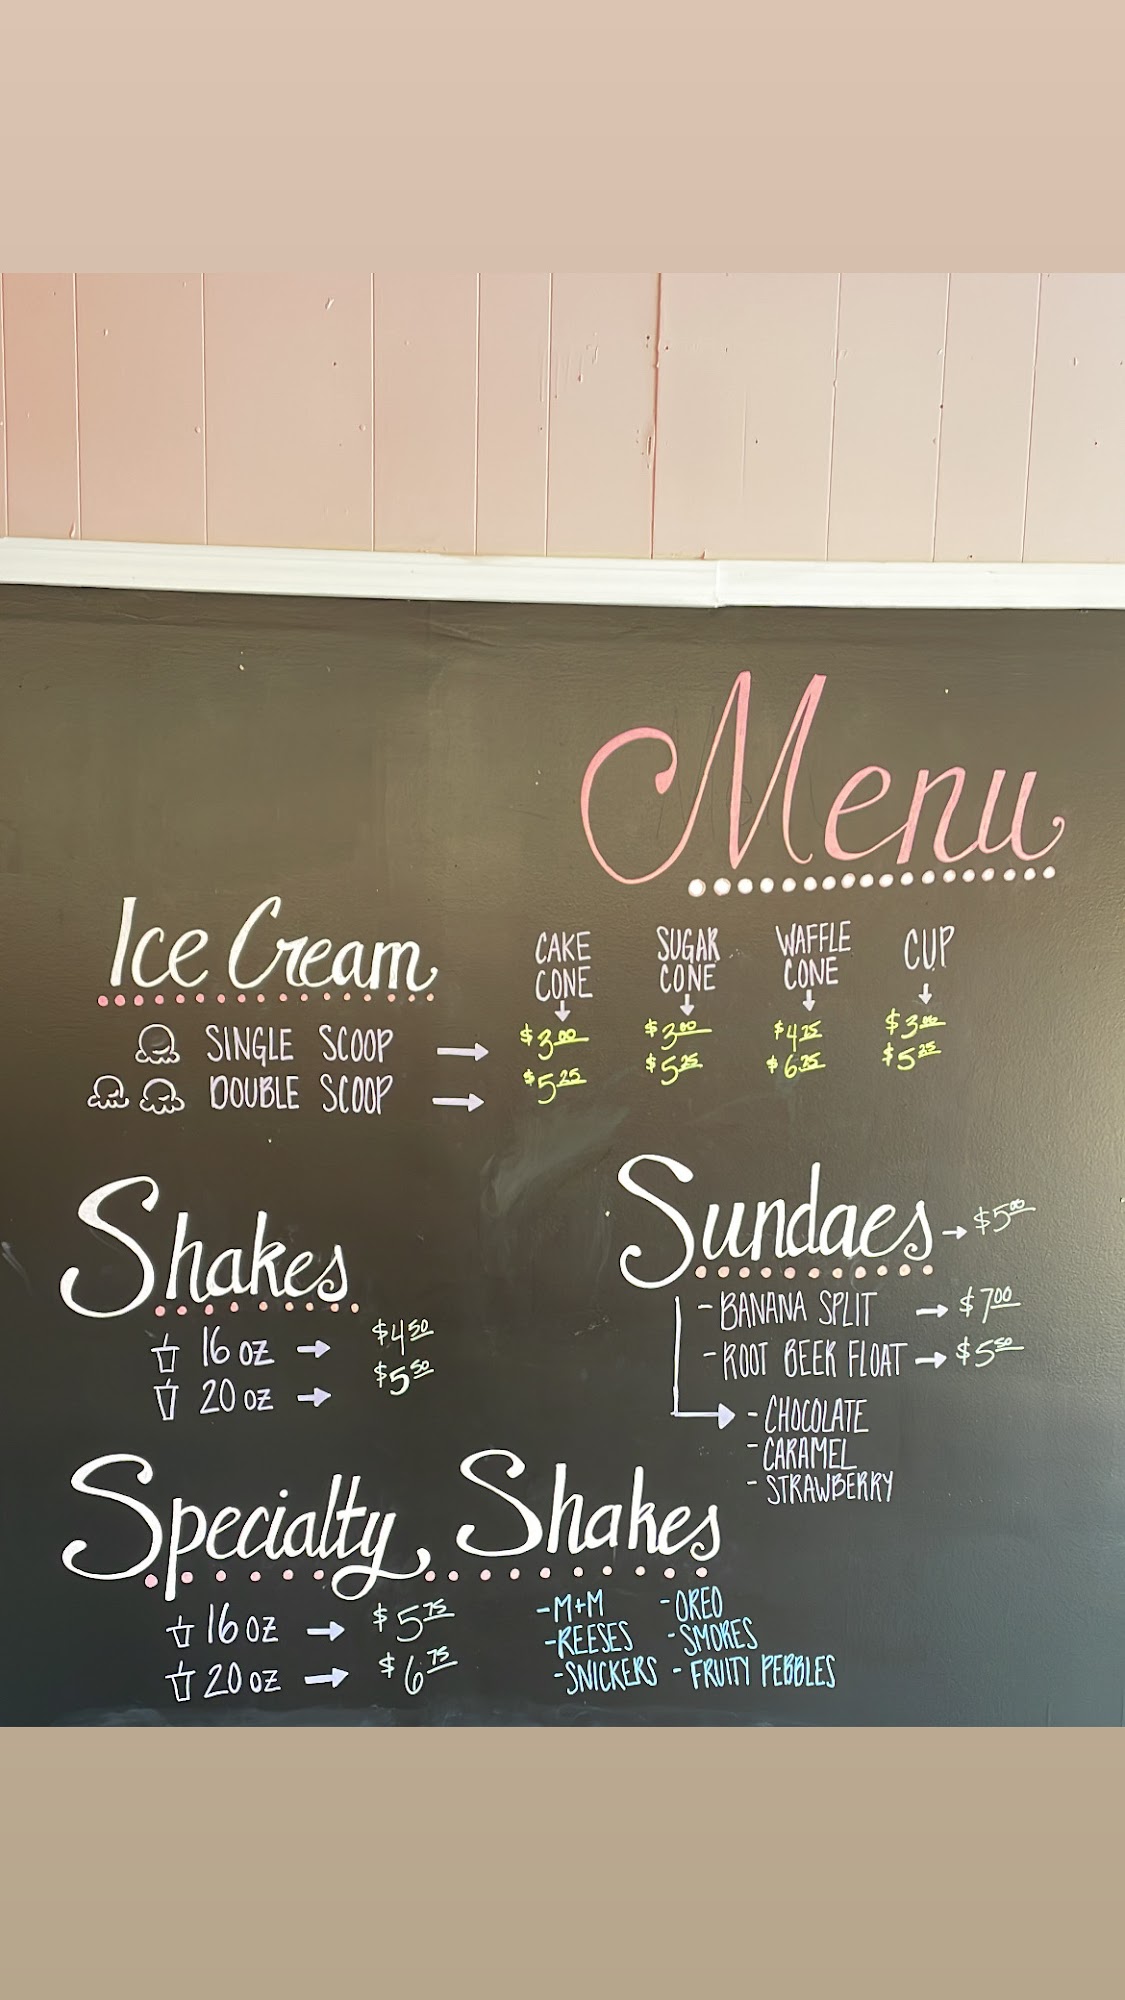 Menu
Ice Cream
CAKE CONE
SUGAR CONE
WAFFLE CONE
CUP
SINGLE SCOOP → $3.00 $3.00 $4.25 $3.00
DOUBLE SCOOP → $5.25 $5.25 $6.25 $5.25
Shakes
16 OZ → $4.50
20 OZ → $5.50
Sundaes → $5.00
- BANANA SPLIT → $7.00
- ROOT BEER FLOAT → $5.50
- CHOCOLATE
- CARAMEL
- STRAWBERRY
Specialty Shakes
16 OZ → $5.75
20 OZ → $6.75
- M+M
- REESES
- SNICKERS
- OREO
- SMORES
- FRUITY PEBBLES